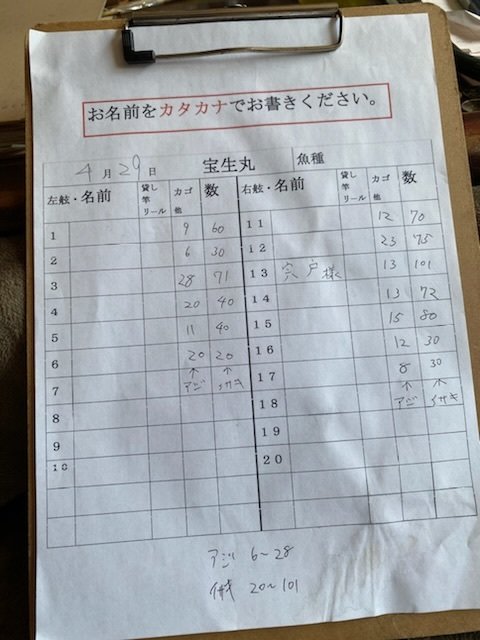 お名前をカタカナでお書きください。
4月29日 宝生丸 魚種
左舷・名前 貸し竿リール カゴ他 数 右舷・名前 貸し竿リール カゴ他 数
1 9 60 11 12 70
2 6 30 12 23 75
3 28 71 13 宍戸様 13 101
4 20 40 14 13 72
5 11 40 15 15 80
6 20 20 16 12 30
7 ↑アジ ↑イサキ 17 8 30
8 18 ↑アジ ↑イサキ
9 19
10 20
アジ 6~28
イサキ 20~101